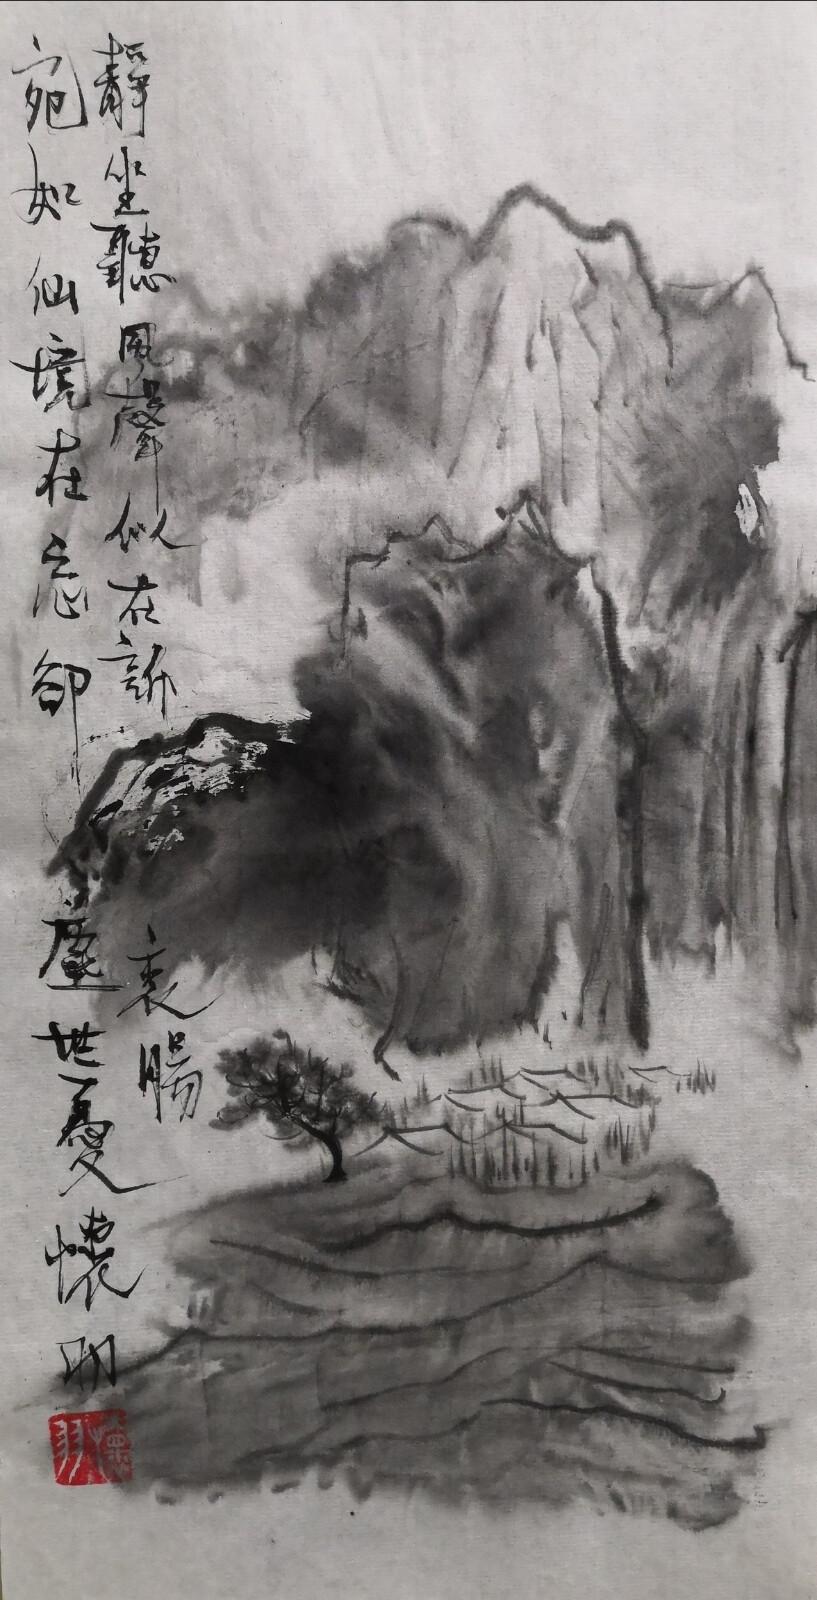 靜坐聽風聲似在訴衷腸
宛如仙境在忘卻塵世憂懷羽
懷羽